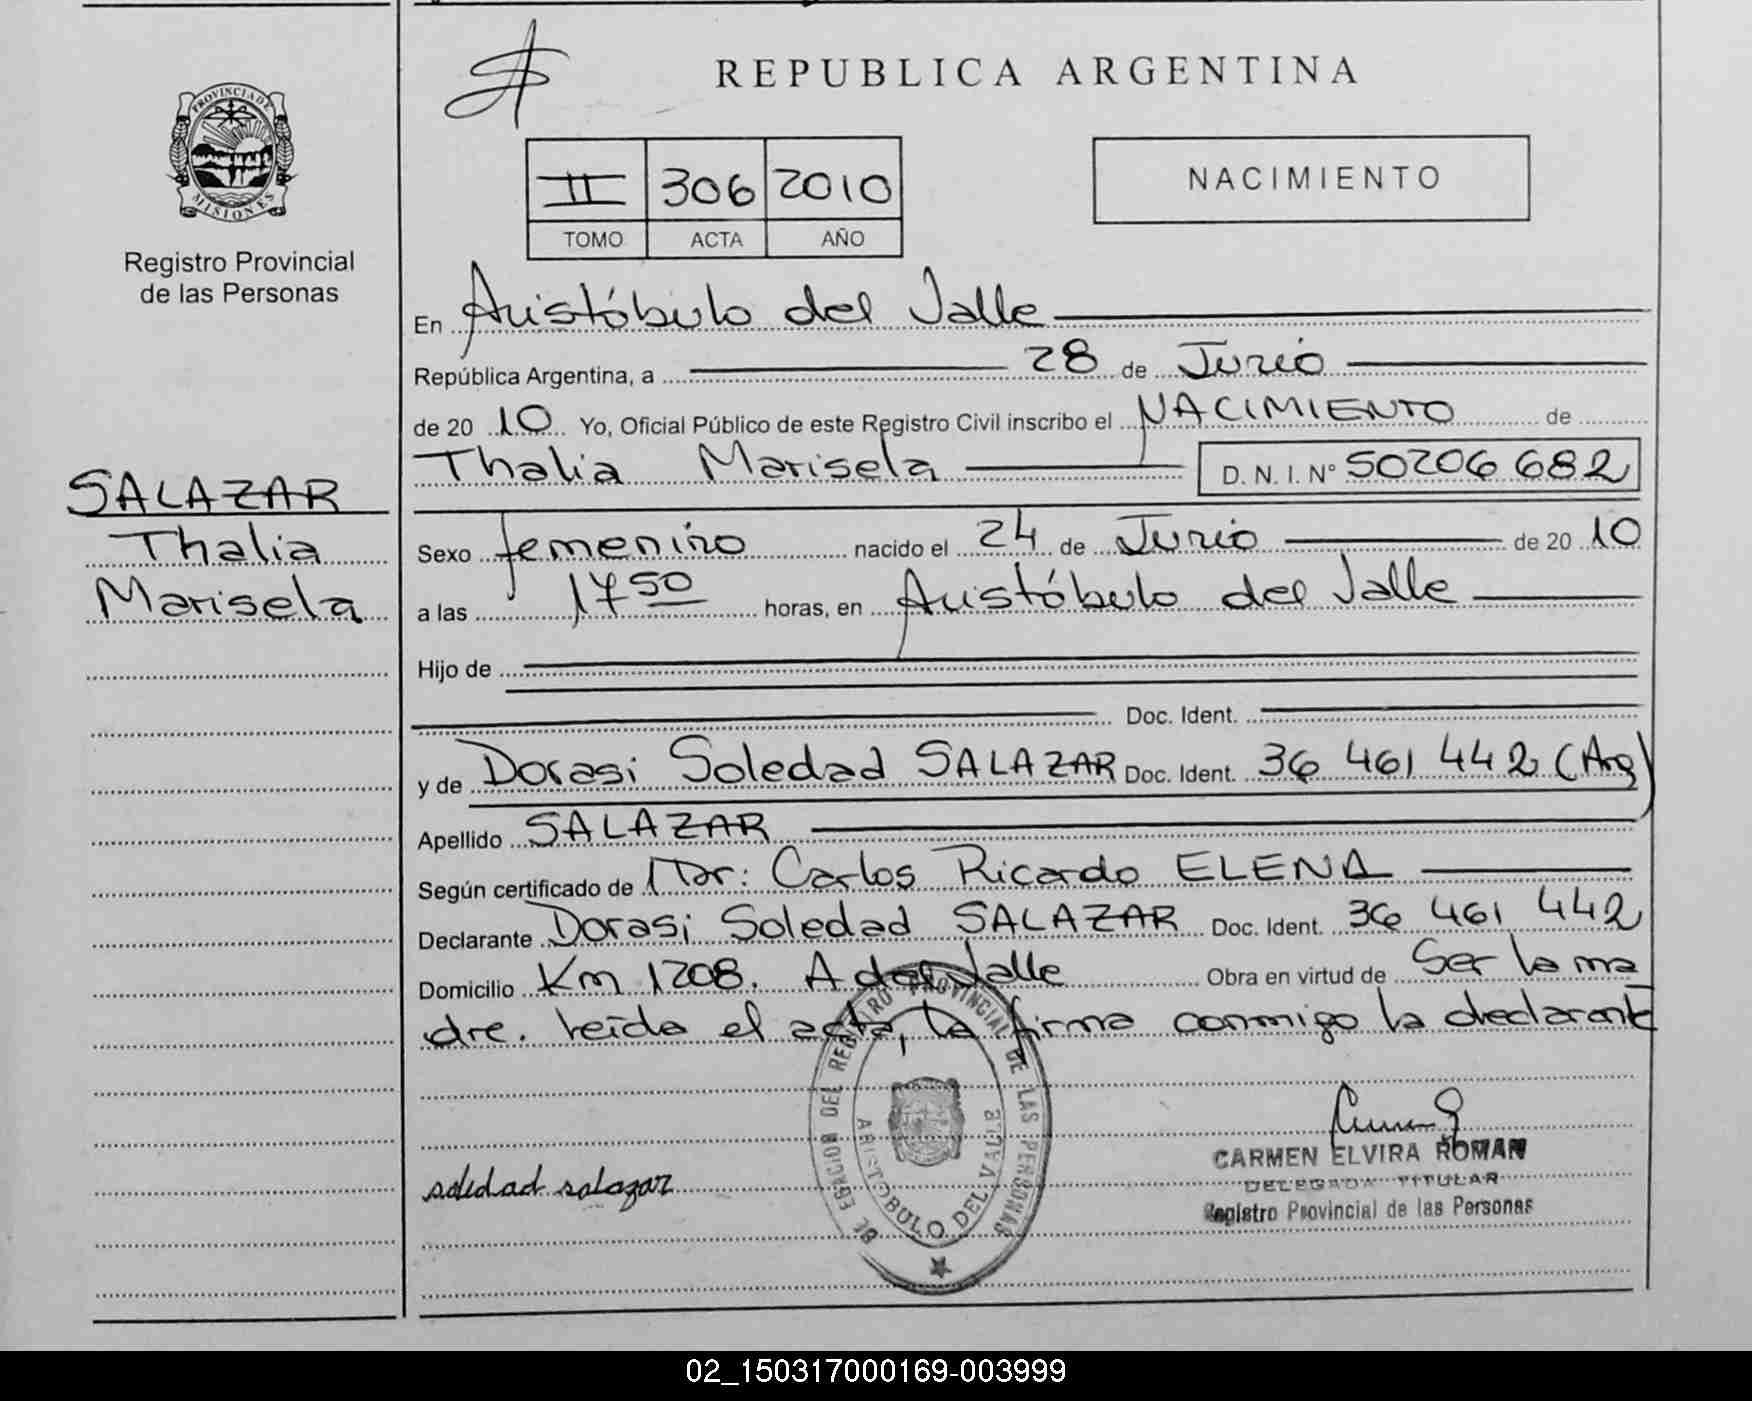 REPUBLICA ARGENTINA
PROVINCIA DE MISIONES
Registro Provincial
de las Personas
II 306 2010
TOMO ACTA AÑO
NACIMIENTO
En Aristóbulo del Valle
República Argentina, a 28 de Junio
de 20 10 Yo, Oficial Público de este Registro Civil inscribo el NACIMIENTO de
Thalia Marisela D. N. I. Nº 50206 682
SALAZAR
Thalia
Marisela
Sexo femenino nacido el 24 de Junio de 20 10
a las 17 50 horas, en Aristóbulo del Valle
Hijo de
Doc. Ident.
y de Dorasi Soledad SALAZAR Doc. Ident. 36 461 442 (Arg)
Apellido SALAZAR
Según certificado de Dr: Carlos Ricardo ELENA
Declarante Dorasi Soledad SALAZAR Doc. Ident. 36 461 442
Domicilio Km 1208. A del Valle Obra en virtud de Ser la ma
dre. leída el acta, la firma conmigo la declarante
DELEGACION DEL REGISTRO PROVINCIAL DE LAS PERSONAS
ARISTOBULO DEL VALLE
soledad salazar
CARMEN ELVIRA ROMAN
DELEGADA TITULAR
Registro Provincial de las Personas
02_150317000169-003999